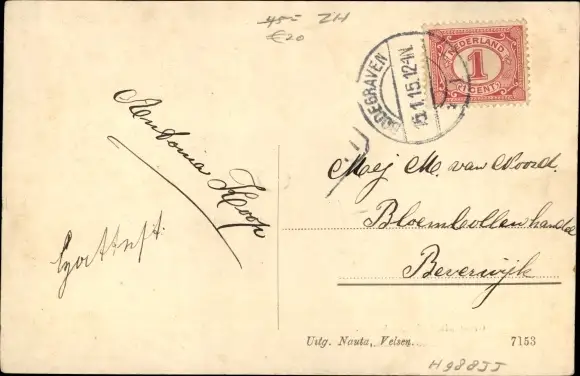 45= ZH
€20
NEDERLAND
1
(1 CENT)
BODEGRAVEN
15.1.15.12-1N.
Antonia Hoop
Mej M. van Noord.
Bloembollenhandel
Beverwijk
Uitg. Nauta, Velsen.
7153
H988JJ